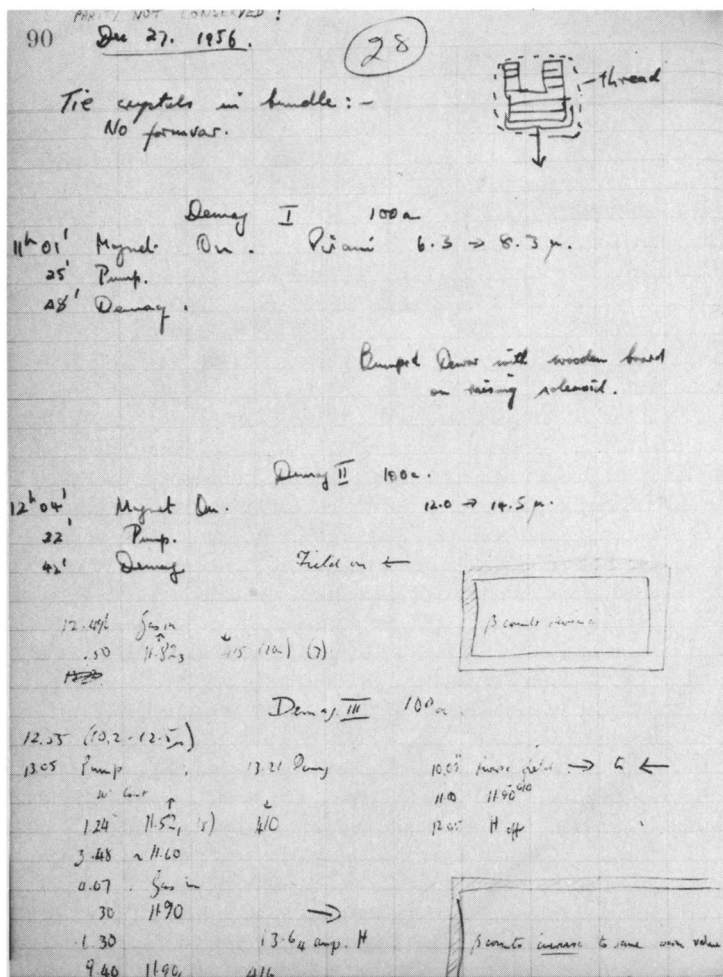 PARITY NOT CONSERVED!
90 Dec 27. 1956. 28
Tie crystals in bundle :-
No formvar.
thread
Demag I 100a
11h 01' Magnet On. Pirani 6.3 → 8.3 μ.
25' Pump.
48' Demag.
Bumped Dewar with wooden board
on raising solenoid.
Demag II 100a.
12h 04' Magnet On. 12.0 → 14.5 μ.
22' Pump.
42' Demag Field on ←
Gas in
β counts
.50 11.82₃ ↑ ↓
Demag. III 100a
12.55 (10.2 - 12.5μ)
13.05 Pump 13.21 Demag 10.05 field → to ←
11.90
1.24 11.52₁ ↑ ↓ 410 H off
3.48 ~ 11.60
4.07 Gas in
30 11.90 →
1.30 13.6₄ amp. H β counts increase to same warm value
9.40 11.90 416